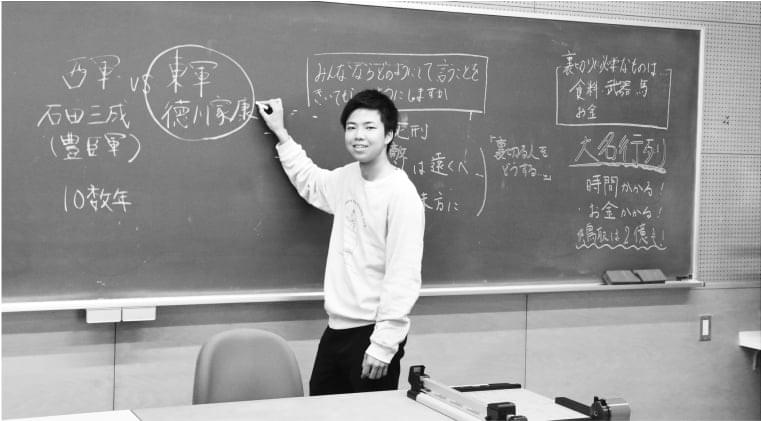 西軍 vs 東軍
石田三成 徳川家康
(豊臣軍)
10数年
みんなならどのようにして言うことを
きいてもらうようにしますか
刑
は遠くへ
味方に
「裏切る人を
どうする」
裏切りに必要なものは
食料 武器 馬
お金
大名行列
時間かかる!
お金かかる!
鳥取は2億も!